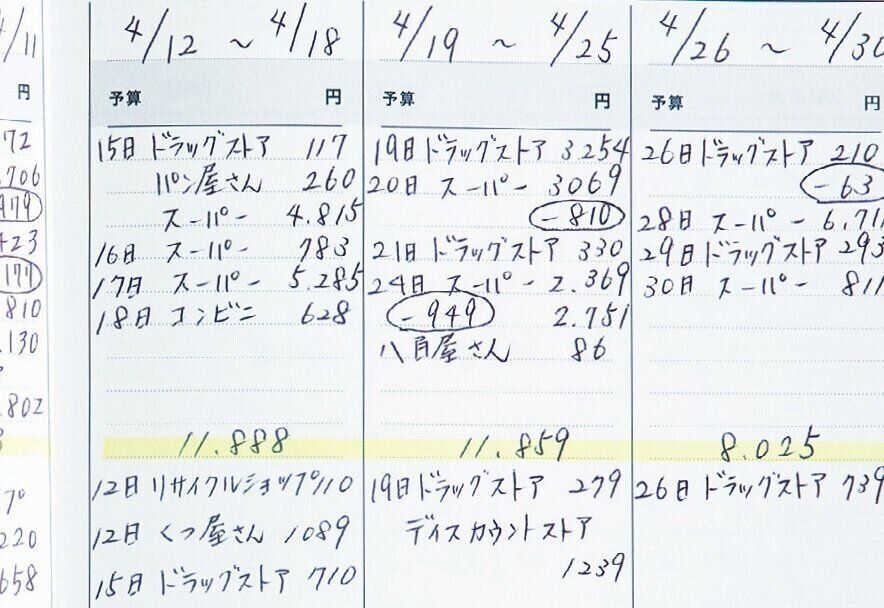 /11
円
72
706
979
423
177
810
.130
.802
220
658
4/12 ~ 4/18
予算 円
15日 ドラッグストア 117
パン屋さん 260
スーパー 4.815
16日 スーパー 783
17日 スーパー 5.285
18日 コンビニ 628
11.888
12日 リサイクルショップ 110
12日 くつ屋さん 1089
15日 ドラッグストア 710
4/19 ~ 4/25
予算 円
19日 ドラッグストア 3254
20日 スーパー 3069
-810
21日 ドラッグストア 330
24日 スーパー 2.369
-949 2.751
八百屋さん 86
11.859
19日 ドラッグストア 279
ディスカウントストア
1239
4/26 ~ 4/30
予算 円
26日 ドラッグストア 210
-63
28日 スーパー 6.711
29日 ドラッグストア 293
30日 スーパー 811
8.025
26日 ドラッグストア 739